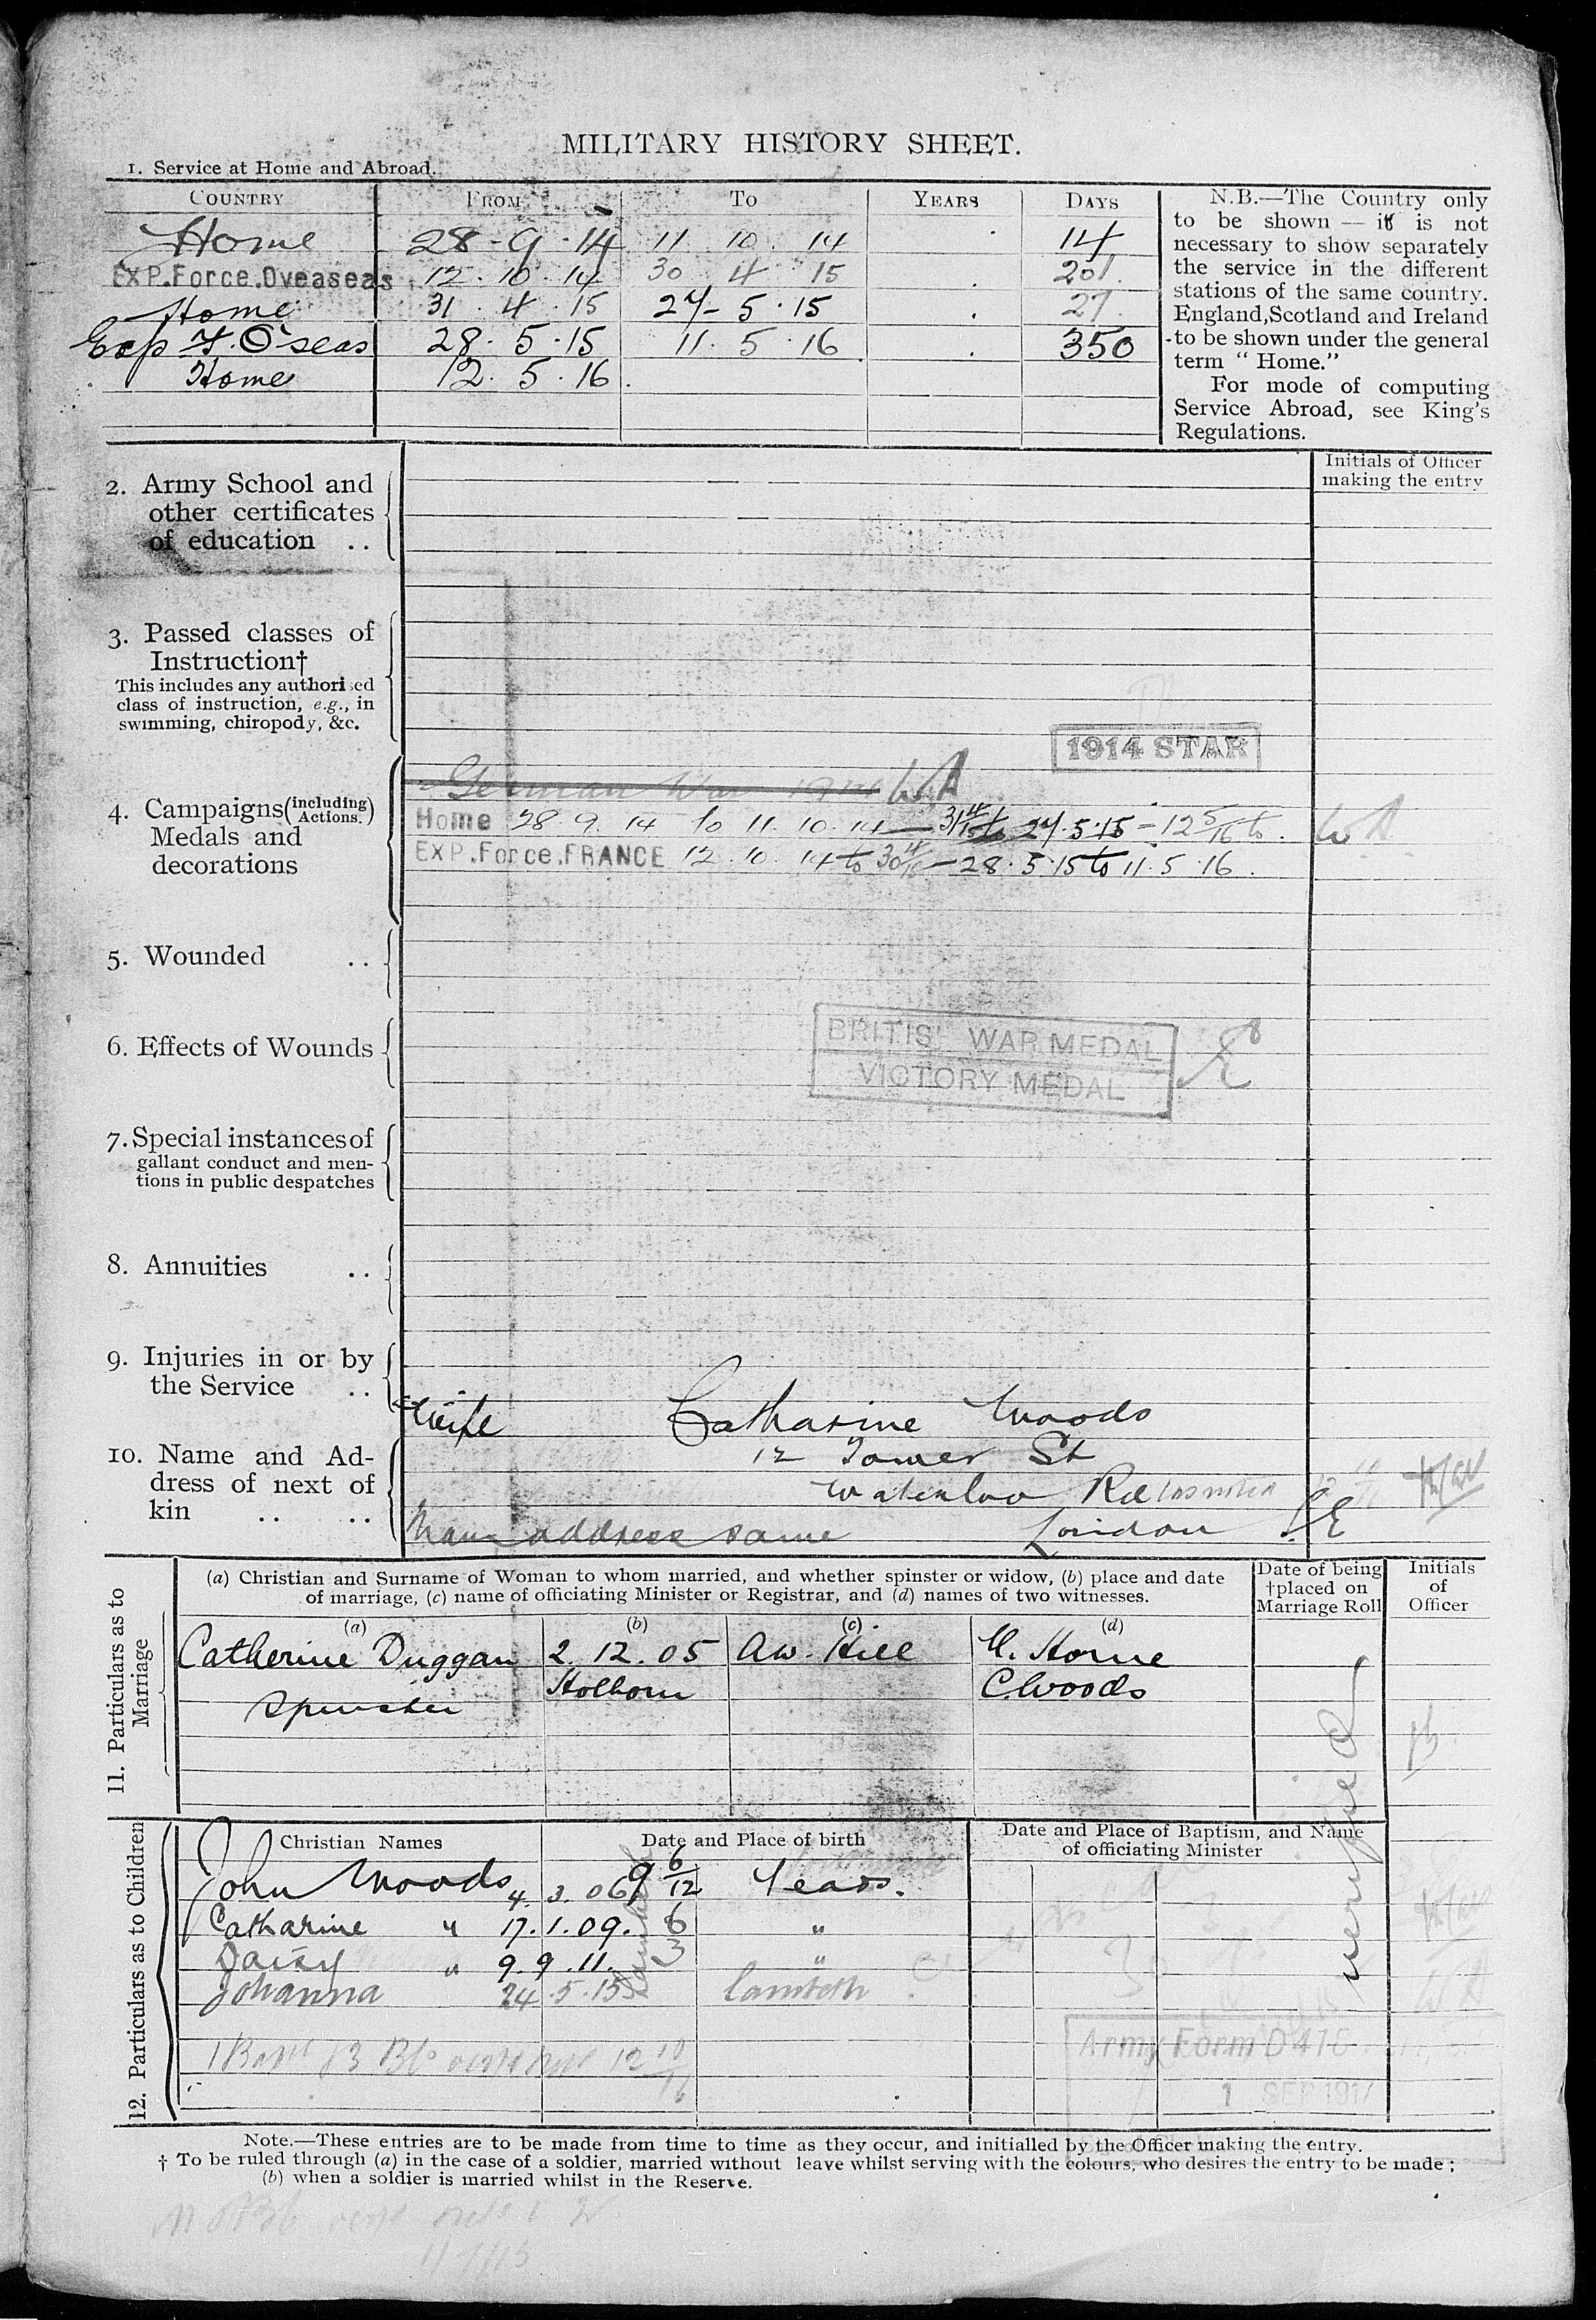 MILITARY HISTORY SHEET.
1. Service at Home and Abroad.
COUNTRY FROM TO YEARS DAYS
Home 28-9-14 11 10 14 14
EXP.Force.Oveaseas 12.10.14 30 4 15 201
Home 31.4.15 27-5.15 27
Exp F. O'seas 28.5.15 11.5.16 350
Home 12.5.16
N.B.—The Country only
to be shown — it is not
necessary to show separately
the service in the different
stations of the same country.
England, Scotland and Ireland
to be shown under the general
term "Home."
For mode of computing
Service Abroad, see King's
Regulations.
Initials of Officer
making the entry
2. Army School and
other certificates
of education ..
3. Passed classes of
Instruction†
This includes any authorised
class of instruction, e.g., in
swimming, chiropody, &c.
1914 STAR
4. Campaigns (including Actions.)
Medals and
decorations
German War 1914 WA
Home 28.9.14 to 11.10.14 — 31/4/15 to 27.5.15 - 12 5/16 to . WA
EXP.Force.FRANCE 12.10.14 to 30/4/15 - 28.5.15 to 11.5.16.
5. Wounded ..
6. Effects of Wounds
BRITIS WAR MEDAL
VICTORY MEDAL
7. Special instances of
gallant conduct and men-
tions in public despatches
8. Annuities ..
9. Injuries in or by
the Service ..
10. Name and Ad-
dress of next of
kin .. ..
Wife Catharine Woods
12 Tower St
Waterloo Rd Lambeth
address same London SE
11. Particulars as to Marriage
(a) Christian and Surname of Woman to whom married, and whether spinster or widow, (b) place and date
of marriage, (c) name of officiating Minister or Registrar, and (d) names of two witnesses.
Date of being
†placed on
Marriage Roll
Initials
of
Officer
(a) (b) (c) (d)
Catherine Duggan 2.12.05 AW. Hill H. Horne
Spinster Holborn C. Woods
verified
12. Particulars as to Children
Christian Names Date and Place of birth Date and Place of Baptism, and Name
of officiating Minister
John Woods 4.3.06 9 6/12 Years.
Catharine " 17.1.09. 6 "
Daisy " 9.9.11. 3 "
Johanna 24.5.15 Lambeth
Army Form D 418
1 SEP 191
Note.—These entries are to be made from time to time as they occur, and initialled by the Officer making the entry.
† To be ruled through (a) in the case of a soldier, married without leave whilst serving with the colours, who desires the entry to be made;
(b) when a soldier is married whilst in the Reserve.